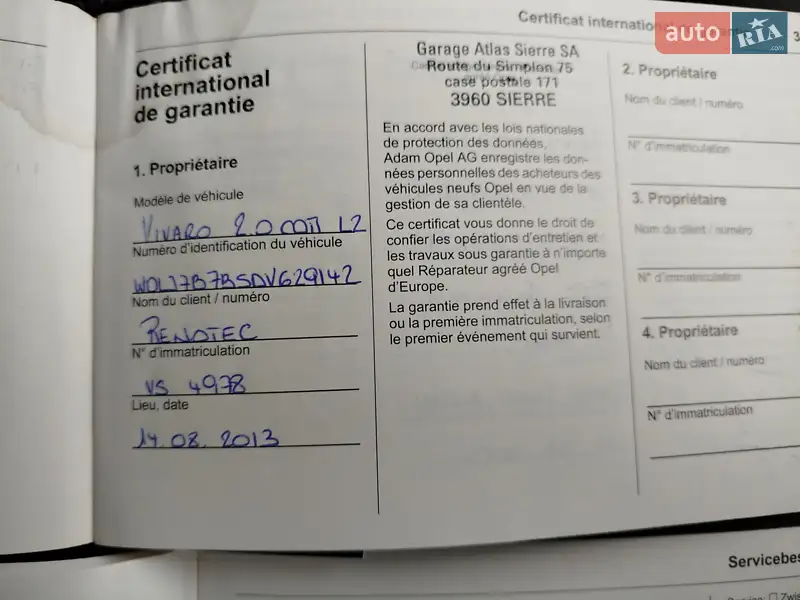 Certificat international
auto RIA .com
3
Certificat
international
de garantie
1. Propriétaire
Modèle de véhicule
VIVARO 2.0 L2
Numéro d'identification du véhicule
W0L17B7BSDV629142
Nom du client / numéro
RENOTEC
N° d'immatriculation
VS 4978
Lieu, date
14.08.2013
Garage Atlas Sierre SA
Route du Simplon 75
case postale 171
3960 SIERRE
En accord avec les lois nationales
de protection des données,
Adam Opel AG enregistre les don-
nées personnelles des acheteurs des
véhicules neufs Opel en vue de la
gestion de sa clientèle.
Ce certificat vous donne le droit de
confier les opérations d'entretien et
les travaux sous garantie à n'importe
quel Réparateur agréé Opel
d'Europe.
La garantie prend effet à la livraison
ou la première immatriculation, selon
le premier événement qui survient.
2. Propriétaire
Nom du client / numéro
N° d'immatriculation
3. Propriétaire
Nom du client / numéro
N° d'immatriculation
4. Propriétaire
Nom du client / numéro
N° d'immatriculation
Servicebes